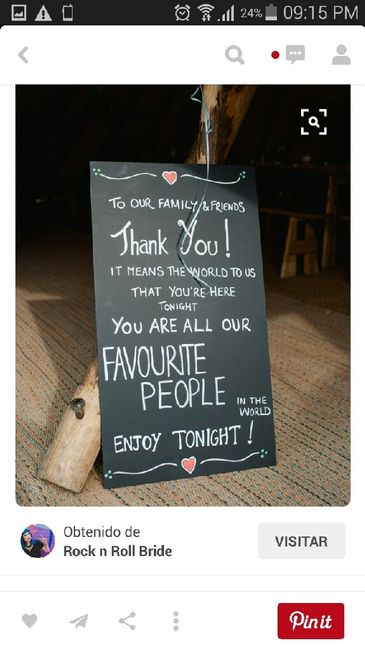 24% 09:15 PM
TO OUR FAMILY & FRIENDS
Thank You!
IT MEANS THE WORLD TO US
THAT YOU'RE HERE
TONIGHT
YOU ARE ALL OUR
FAVOURITE
PEOPLE
IN THE
WORLD
ENJOY TONIGHT!
Obtenido de
Rock n Roll Bride
VISITAR
Pin it